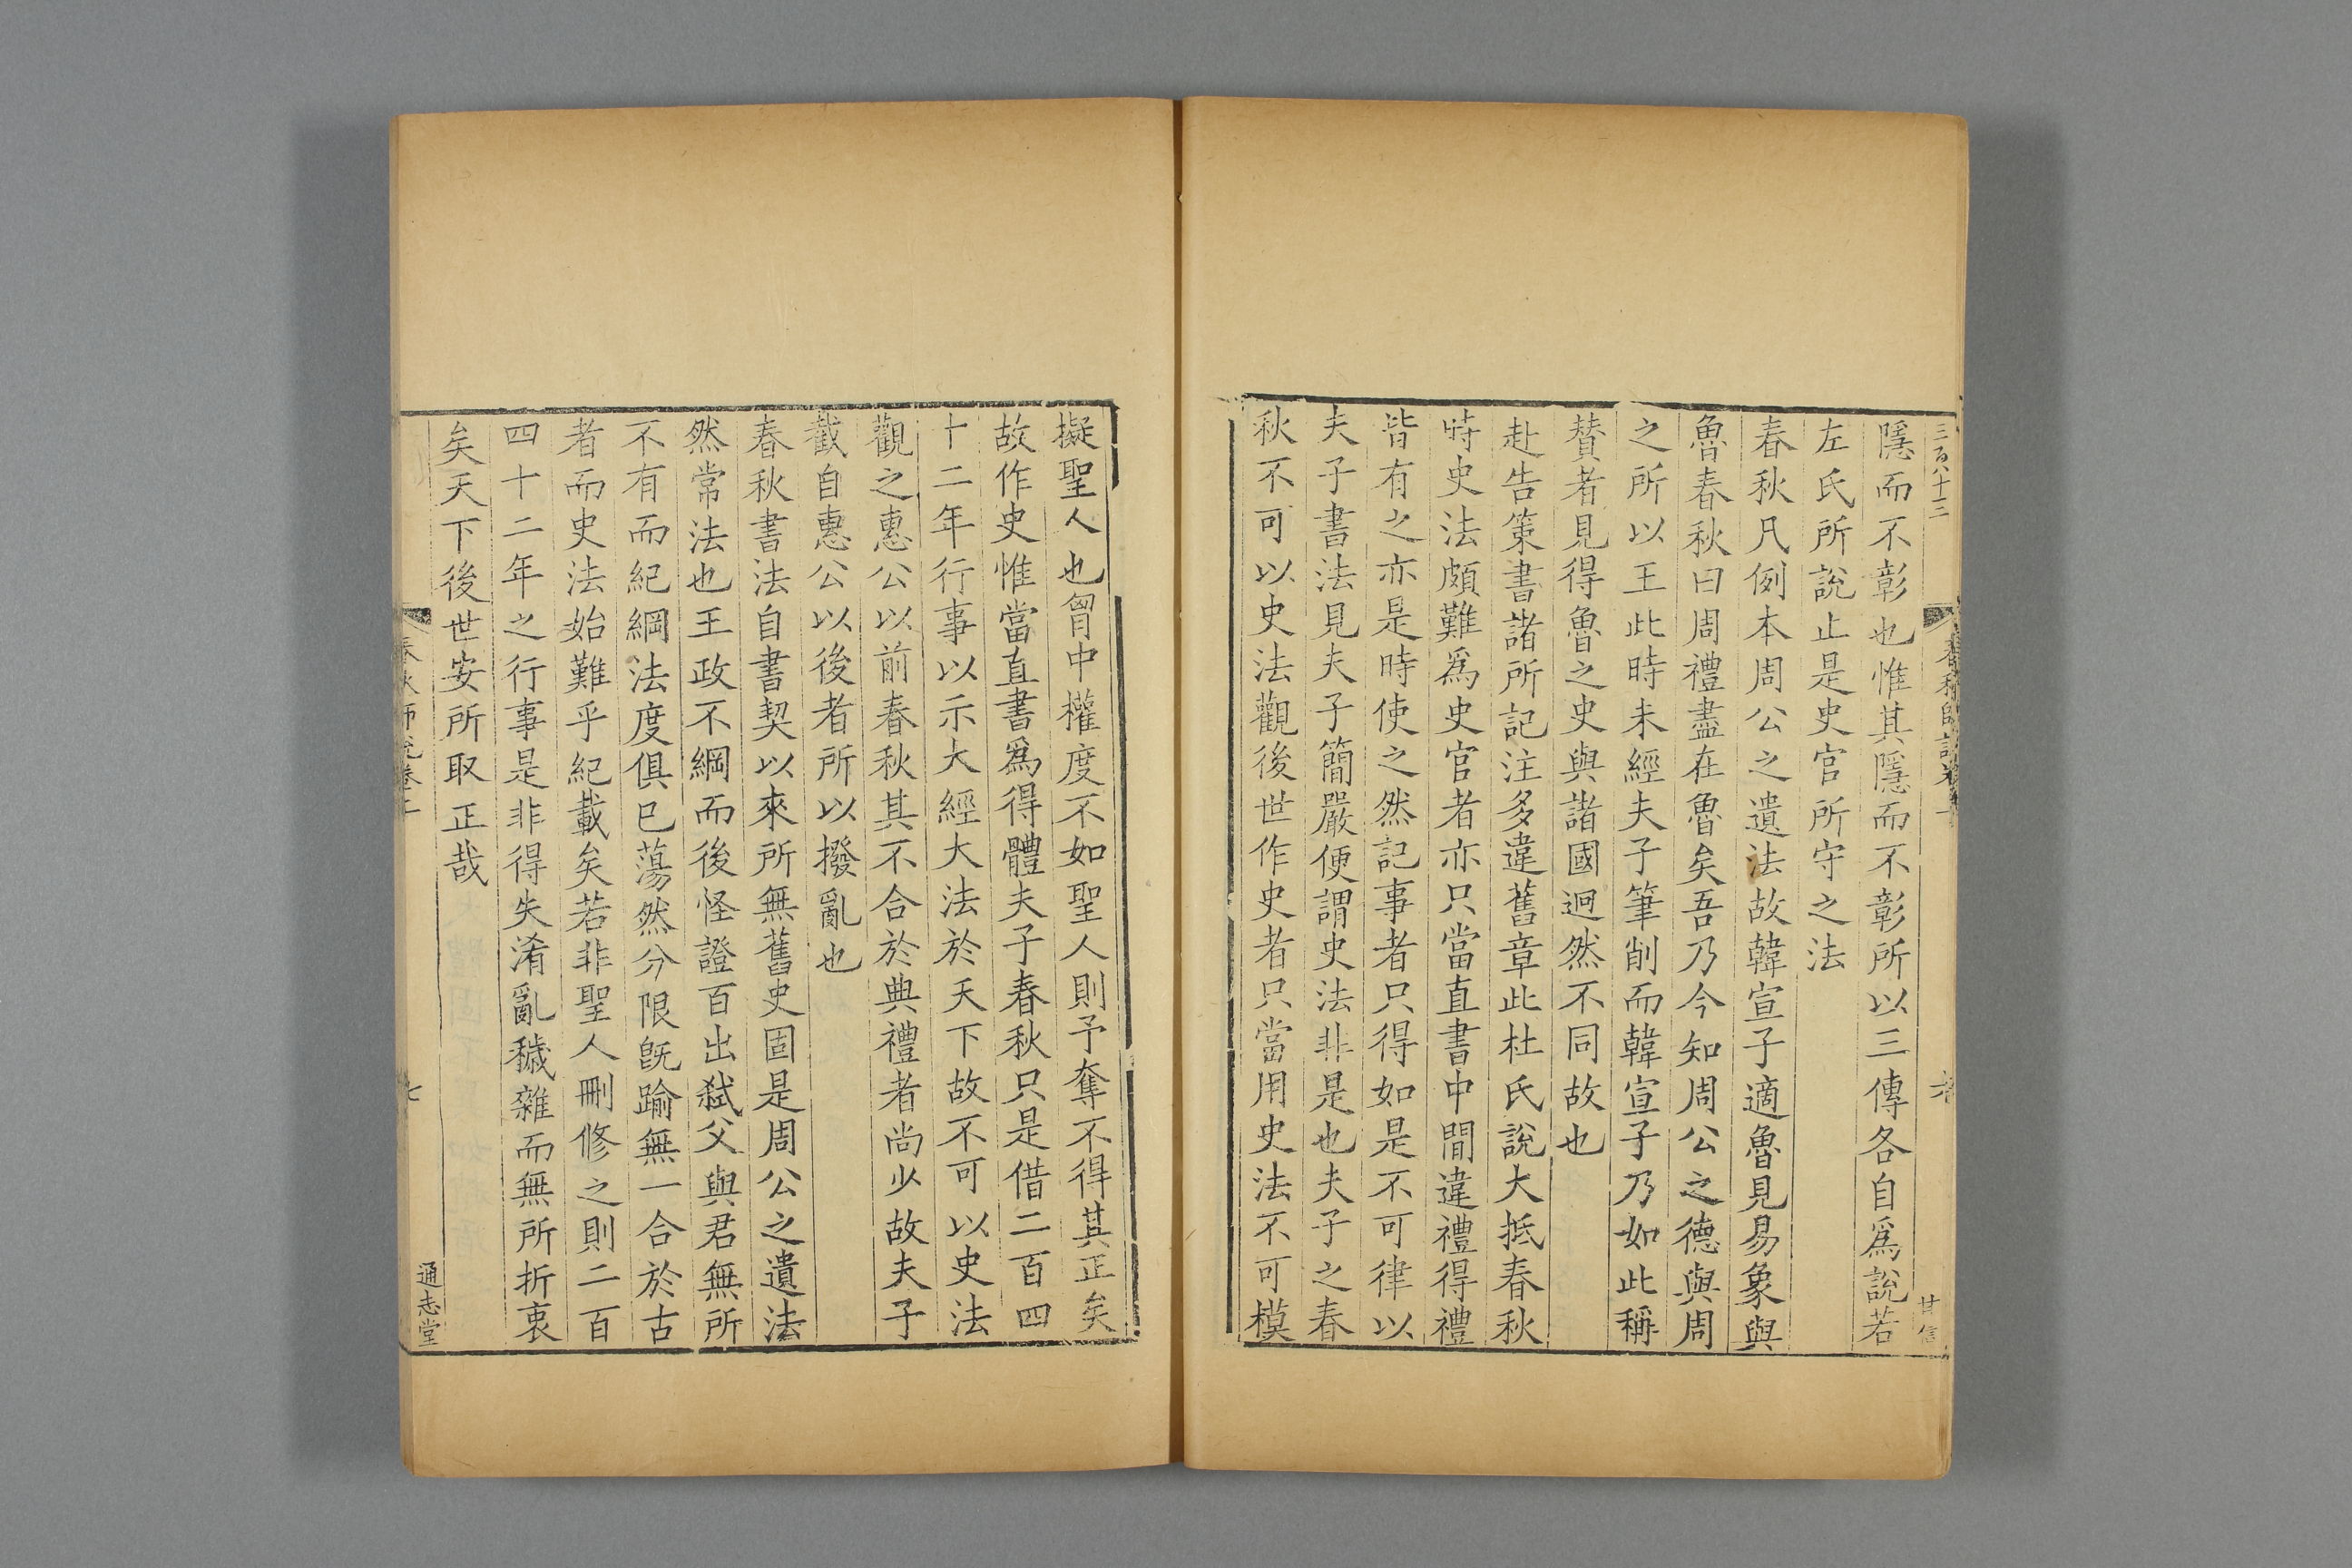 三百八十二
春秋師說卷上
隱而不彰也惟其隱而不彰所以三傳各自爲說若
左氏所說止是史官所守之法
春秋凡例本周公之遺法故韓宣子適魯見易象與
魯春秋曰周禮盡在魯矣吾乃今知周公之德與周
之所以王此時未經夫子筆削而韓宣子乃如此稱
賛者見得魯之史與諸國迥然不同故也
赴告策書諸所記注多違舊章此杜氏說大抵春秋
時史法頗難爲史官者亦只當直書中間違禮得禮
皆有之亦是時使之然記事者只得如是不可律以
夫子書法見夫子簡嚴便謂史法非是也夫子之春
秋不可以史法觀後世作史者只當用史法不可模
擬聖人也胷中權度不如聖人則予奪不得其正矣
故作史惟當直書爲得體夫子春秋只是借二百四
十二年行事以示大經大法於天下故不可以史法
觀之惠公以前春秋其不合於典禮者尚少故夫子
截自惠公以後者所以撥亂也
春秋書法自書契以來所無舊史固是周公之遺法
然常法也王政不綱而後怪證百出弑父與君無所
不有而紀綱法度俱已蕩然分限旣踰無一合於古
者而史法始難乎紀載矣若非聖人刪修之則二百
四十二年之行事是非得失淆亂穢雜而無所折衷
矣天下後世安所取正哉
春秋師說卷上
七
通志堂